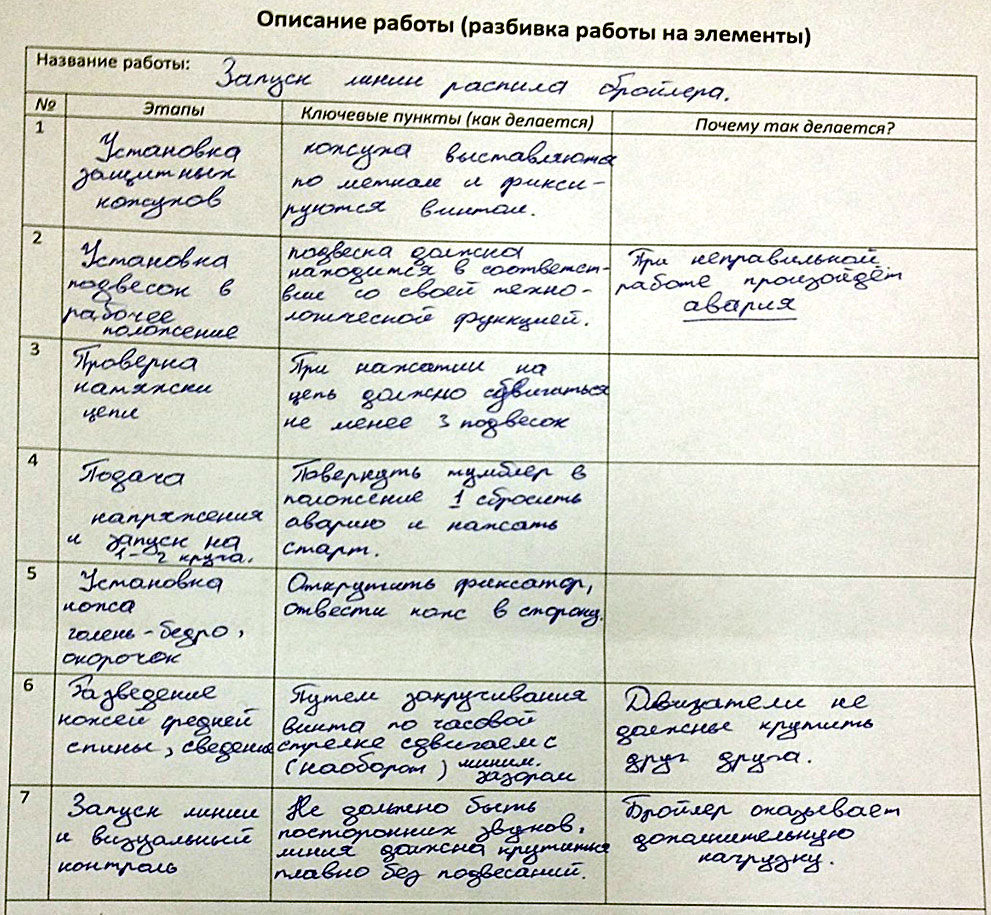 Описание работы (разбивка работы на элементы)
Название работы: Запуск линии распила бройлера.
№ Этапы Ключевые пункты (как делается) Почему так делается?
1
Установка
защитных
кожухов
кожуха выставляются
по меткам и фикси-
руются винтом.
2
Установка
подвесок в
рабочее
положение
подвеска должна
находится в соответст-
вии со своей техно-
логической функцией.
При неправильной
работе произойдёт
авария
3
Проверка
натяжки
цепи
При нажатии на
цепь должно сдвигаться
не менее 3 подвесок
4
Подача
напряжения
и запуск на
1-2 круга.
Повернуть тумблер в
положение 1 сбросить
аварию и нажать
старт.
5
Установка
копса
голень-бедро,
окорочок
Открутить фиксатор,
отвести копс в сторону.
6
Разведение
ножей средней
спины, сведение
Путем закручивания
винта по часовой
стрелке сдвигаем с
(наоборот) миним.
зазором
Двигатели не
должны крутить
друг друга.
7
Запуск линии
и визуальный
контроль
Не должно быть
посторонних звуков,
линия должна крутится
плавно без подвесаний.
Бройлер оказывает
дополнительную
нагрузку.